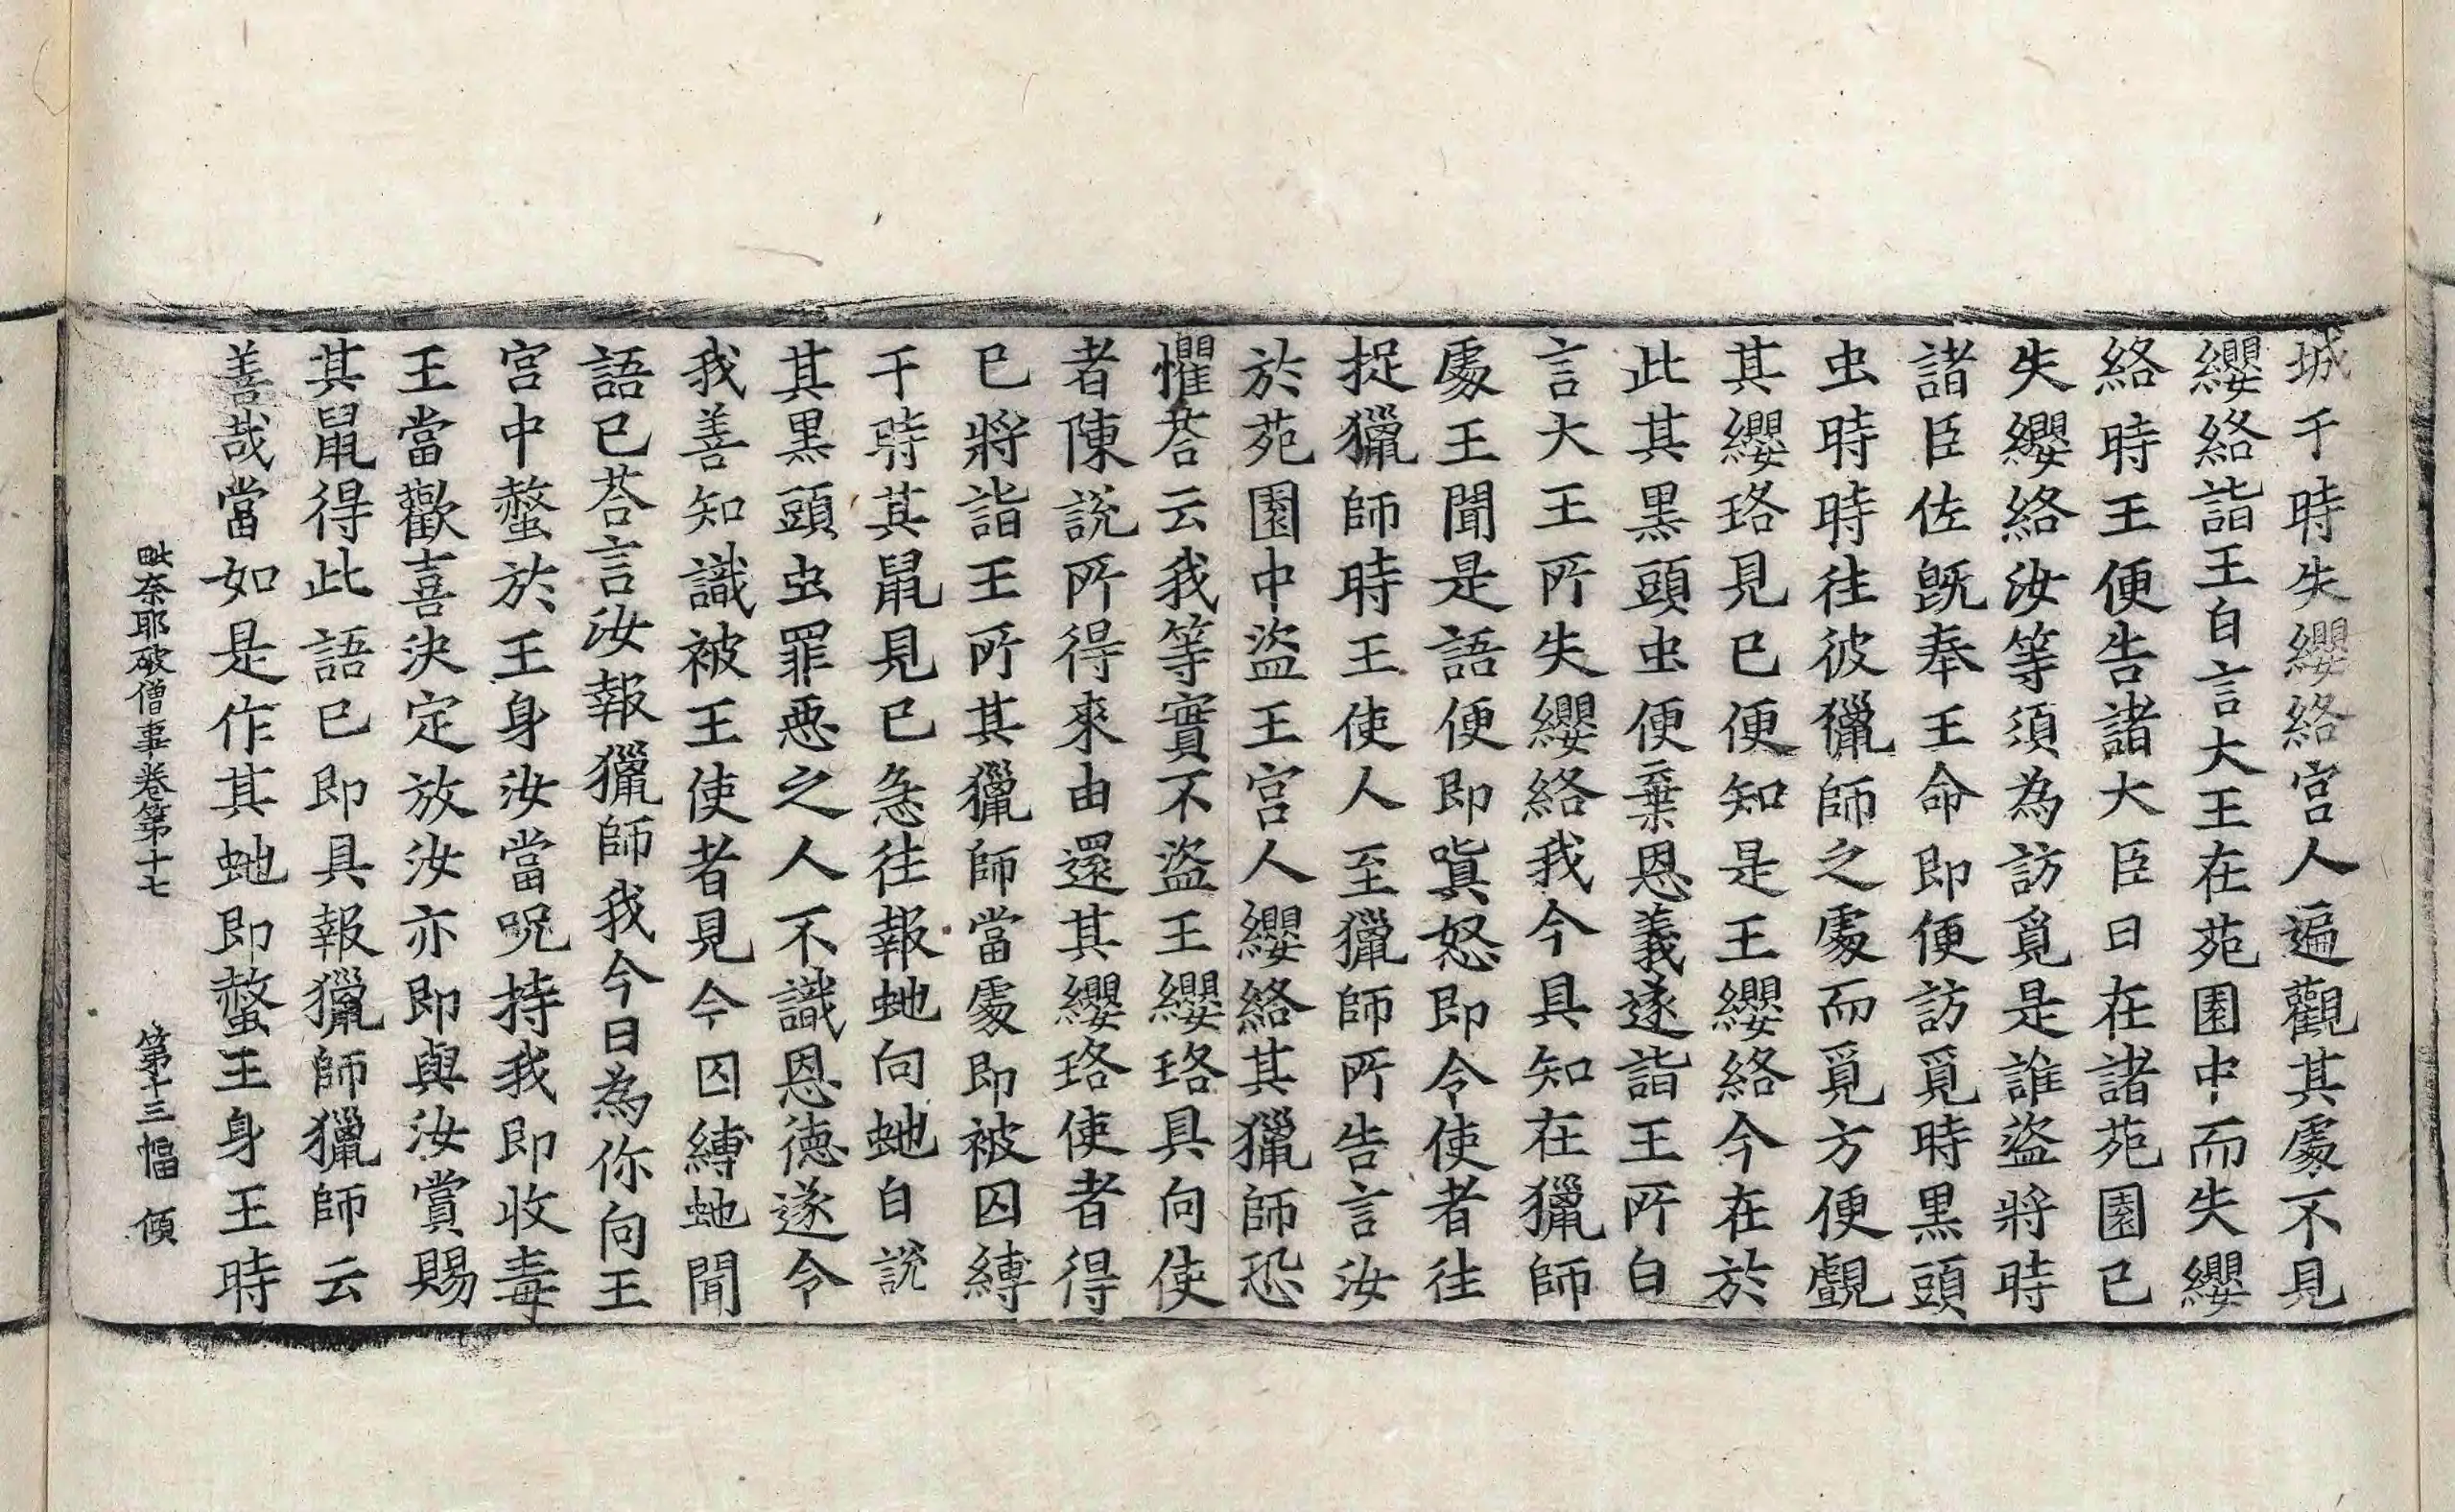 城于時失纓絡宮人遍觀其處不見
纓絡詣王白言大王在苑園中而失纓
絡時王便告諸大臣曰在諸苑園已
失纓絡汝等須為訪覓是誰盜將時
諸臣佐既奉王命即便訪覓時黑頭
虫時時往彼獵師之處而覓方便覰
其纓珞見已便知是王纓絡今在於
此其黑頭虫便棄恩義遂詣王所白
言大王所失纓絡我今具知在獵師
處王聞是語便即嗔怒即令使者往
捉獵師時王使人至獵師所告言汝
於苑園中盜王宮人纓絡其獵師恐
懼荅云我等實不盜王纓珞具向使
者陳說所得來由還其纓珞使者得
已將詣王所其獵師當處即被囚縛
于時其鼠見已急往報虵向虵白說
其黑頭虫罪惡之人不識恩德遂令
我善知識被王使者見今囚縛虵聞
語已荅言汝報獵師我今日為你向王
宮中螫於王身汝當呪持我即收毒
王當歡喜決定放汝亦即與汝賞賜
其鼠得此語已即具報獵師獵師云
善哉當如是作其虵即螫王身王時
毗奈耶破僧事卷第十七 第十三幅 傾